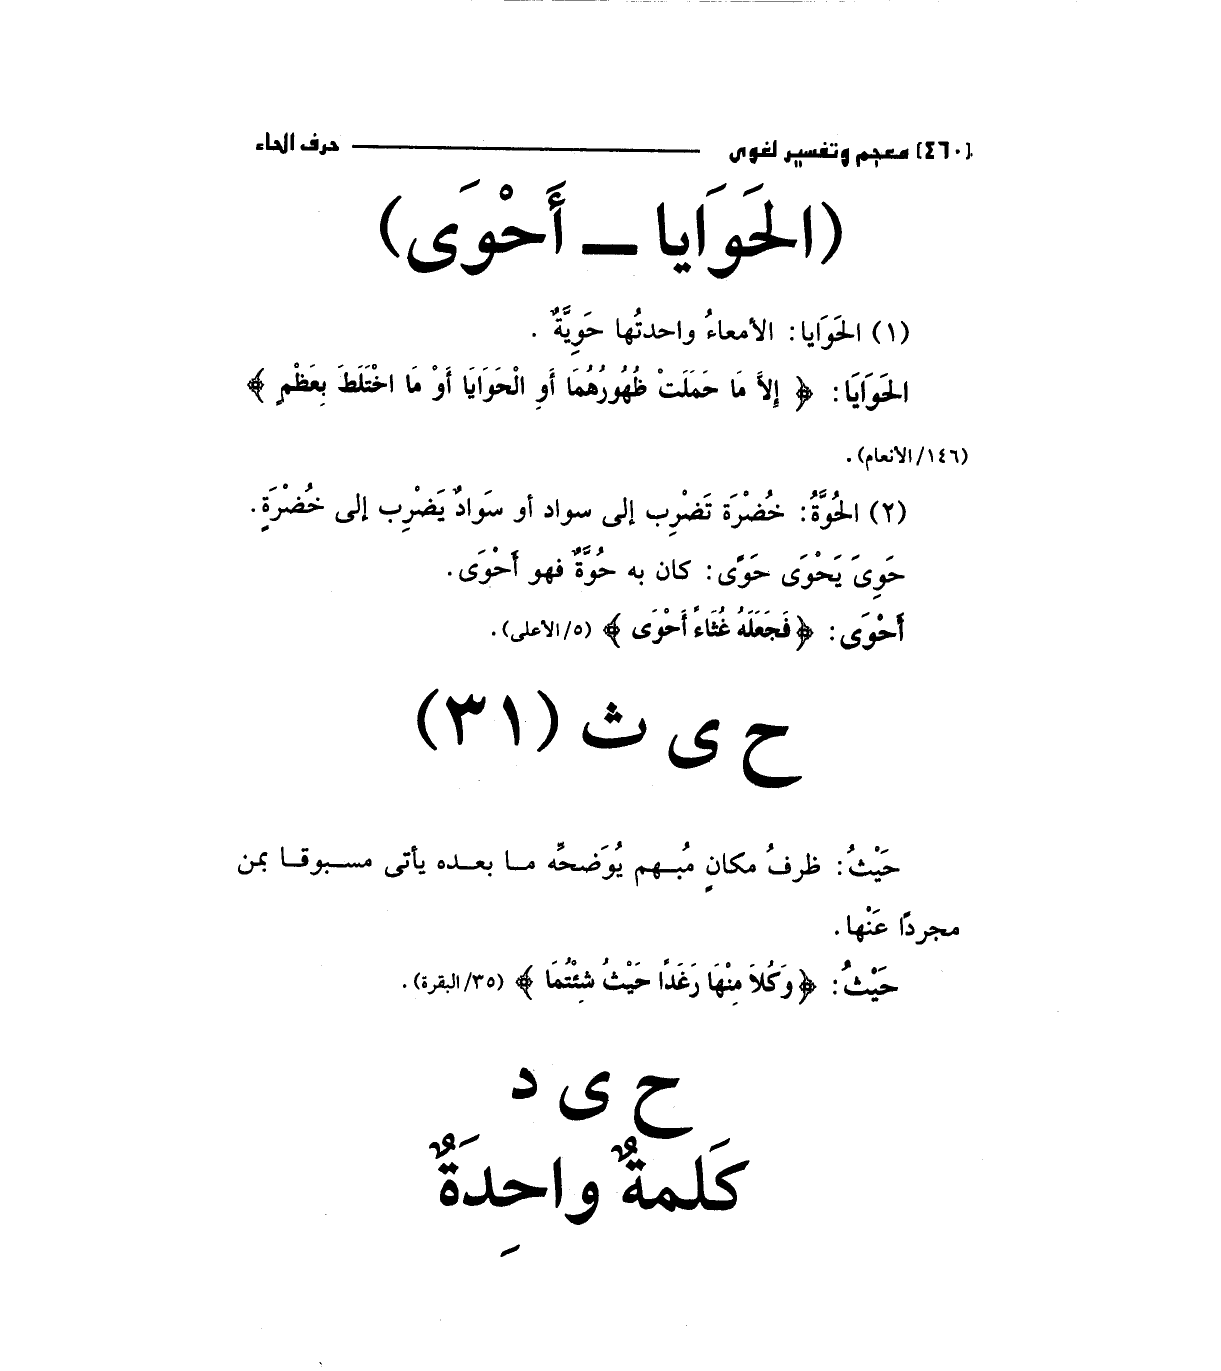 [٤٦٠] معجم وتفسير لغوى حرف الحاء
(الحَوَايا ــ أَحْوَى)
(١) الحَوَايا: الأمعاءُ واحدتُها حَوِيَّةٌ .
الحَوَايَا: ﴿ إِلاَّ مَا حَمَلَتْ ظُهُورُهُمَا أَوِ الْحَوَايَا أَوْ مَا اخْتَلَطَ بِعَظْمٍ ﴾
(١٤٦/الأنعام).
(٢) الحُوَّةُ: خُضْرَة تَضْرِب إلى سواد أو سَوادٌ يَضْرِب إلى خُضْرَةٍ.
حَوِىَ يَحْوَى حَوًى: كان به حُوَّةٌ فهو أَحْوَى.
أَحْوَى: ﴿ فَجَعَلَهُ غُثَاءً أَحْوَى ﴾ (٥/الأعلى).
ح ى ث (٣١)
حَيْثُ: ظرفُ مكانٍ مُبـهم يُوَضحِّه مـا بعـده يأتى مسـبوقـا بمن
مجردًا عَنْها.
حَيْثُ: ﴿ وَكُلاَ مِنْهَا رَغَدًا حَيْثُ شِئْتُمَا ﴾ (٣٥/البقرة).
ح ى د
كَلمةٌ واحِدَةٌ